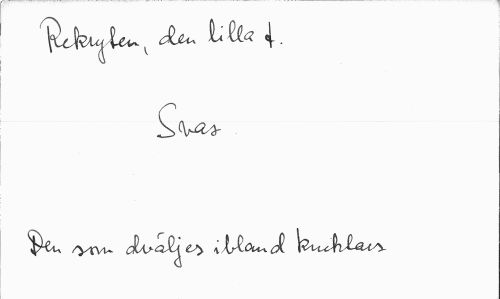 Rekryten, den lilla t.
Svas
Den som dväljes ibland kneklars